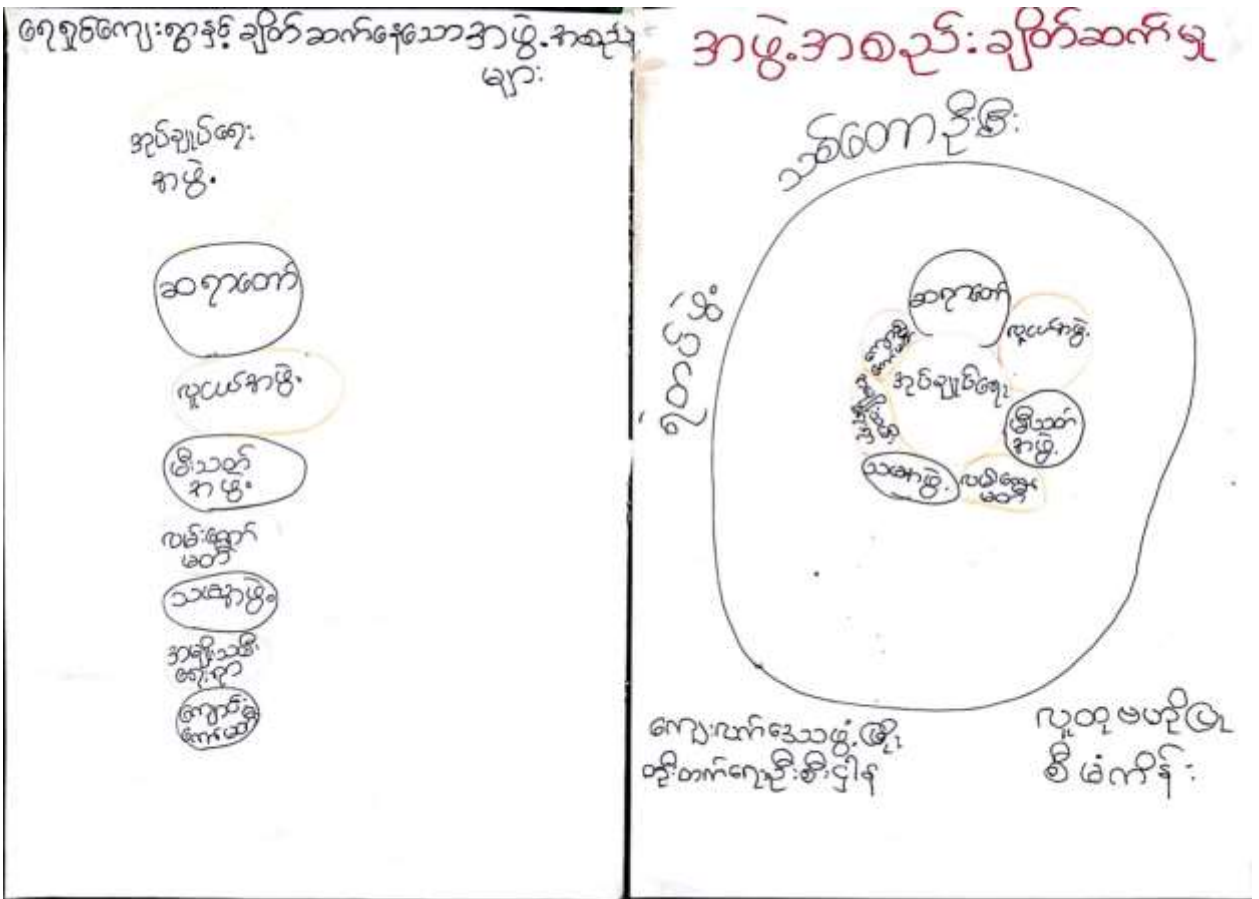 ရေရှင်ကျေးရွာနှင့် ချိတ်ဆက်နေသော အဖွဲ့အစည်း
များ
အုပ်ချုပ်ရေး
အဖွဲ့
ဆရာတော်
လူငယ်အဖွဲ့
မီးသတ်
အဖွဲ့
လမ်းကော်
မတီ
သာရေးအဖွဲ့
အမျိုးသမီး
ရေးရာ
ကျောင်း
ကော်မတီ
အဖွဲ့အစည်းချိတ်ဆက်မှု
သစ်တောဦးစီး
ရဲတပ်ဖွဲ့
ဆရာတော်
လူငယ်အဖွဲ့
အုပ်ချုပ်ရေး
မီးသတ်
အဖွဲ့
လမ်းကော်
မတီ
ကျေးလက်ဒေသဖွံ့ဖြိုး
တိုးတက်ရေးဦးစီးဌာန
လူထုဗဟိုပြု
စီမံကိန်း